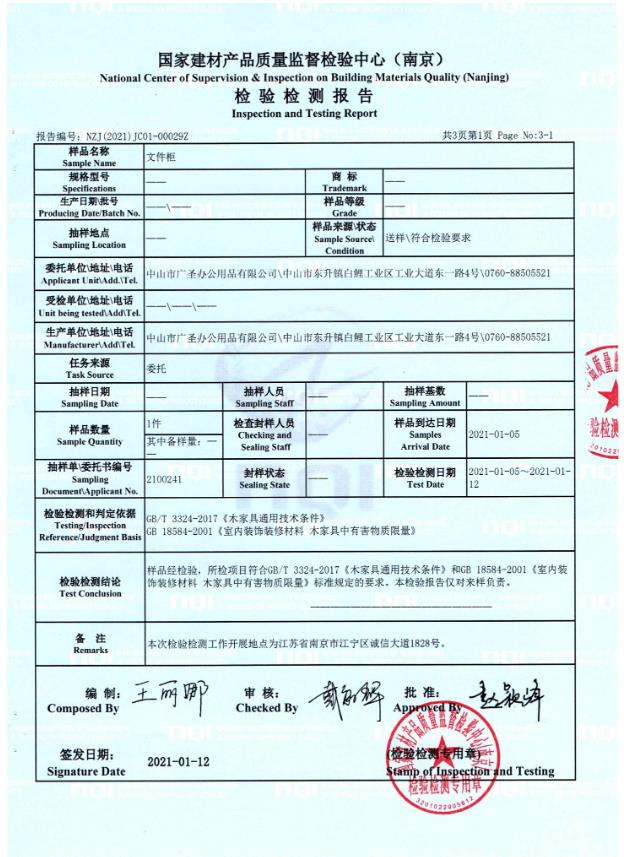 国家建材产品质量监督检验中心（南京）
National Center of Supervision & Inspection on Building Materials Quality (Nanjing)
检验检测报告
Inspection and Testing Report
报告编号: NZJ(2021)JC01-00029Z 共3页第1页 Page No:3-1
样品名称 文件柜
Sample Name
规格型号 —— 商 标 ——
Specifications Trademark
生产日期\批号 ——\—— 样品等级 ——
Producing Date/Batch No. Grade
抽样地点 —— 样品来源\状态 送样\符合检验要求
Sampling Location Sample Source\
Condition
委托单位\地址\电话 中山市广圣办公用品有限公司\中山市东升镇白鲤工业区工业大道东一路4号\0760-88505521
Applicant Unit\Add.\Tel.
受检单位\地址\电话 ——\——\——
Unit being tested\Add\Tel.
生产单位\地址\电话 中山市广圣办公用品有限公司\中山市东升镇白鲤工业区工业大道东一路4号\0760-88505521
Manufacturer\Add\Tel.
任务来源 委托
Task Source
抽样日期 —— 抽样人员 —— 抽样基数 ——
Sampling Date Sampling Staff Sampling Amount
样品数量 1件 检查封样人员 —— 样品到达日期 2021-01-05
Sample Quantity 其中备样量: —— Checking and Sealing Staff Samples Arrival Date
抽样单\委托书编号 2100241 封样状态 —— 检验检测日期 2021-01-05～2021-01-12
Sampling Document\Applicant No. Sealing State Test Date
检验检测和判定依据 GB/T 3324-2017《木家具通用技术条件》
Testing/Inspection GB 18584-2001《室内装饰装修材料 木家具中有害物质限量》
Reference/Judgment Basis
检验检测结论 样品经检验，所检项目符合GB/T 3324-2017《木家具通用技术条件》和GB 18584-2001《室内装
Test Conclusion 饰装修材料 木家具中有害物质限量》标准规定的要求。本检验报告仅对来样负责。
备 注 本次检验检测工作开展地点为江苏省南京市江宁区诚信大道1828号。
Remarks
编 制: 王丽娜 审 核: 批 准:
Composed By Checked By Approved By
签发日期: 2021-01-12 (检验检测专用章)
Signature Date Stamp of Inspection and Testing
国家建材产品质量监督检验中心(南京)
检验检测专用章
3201022005612
nqi